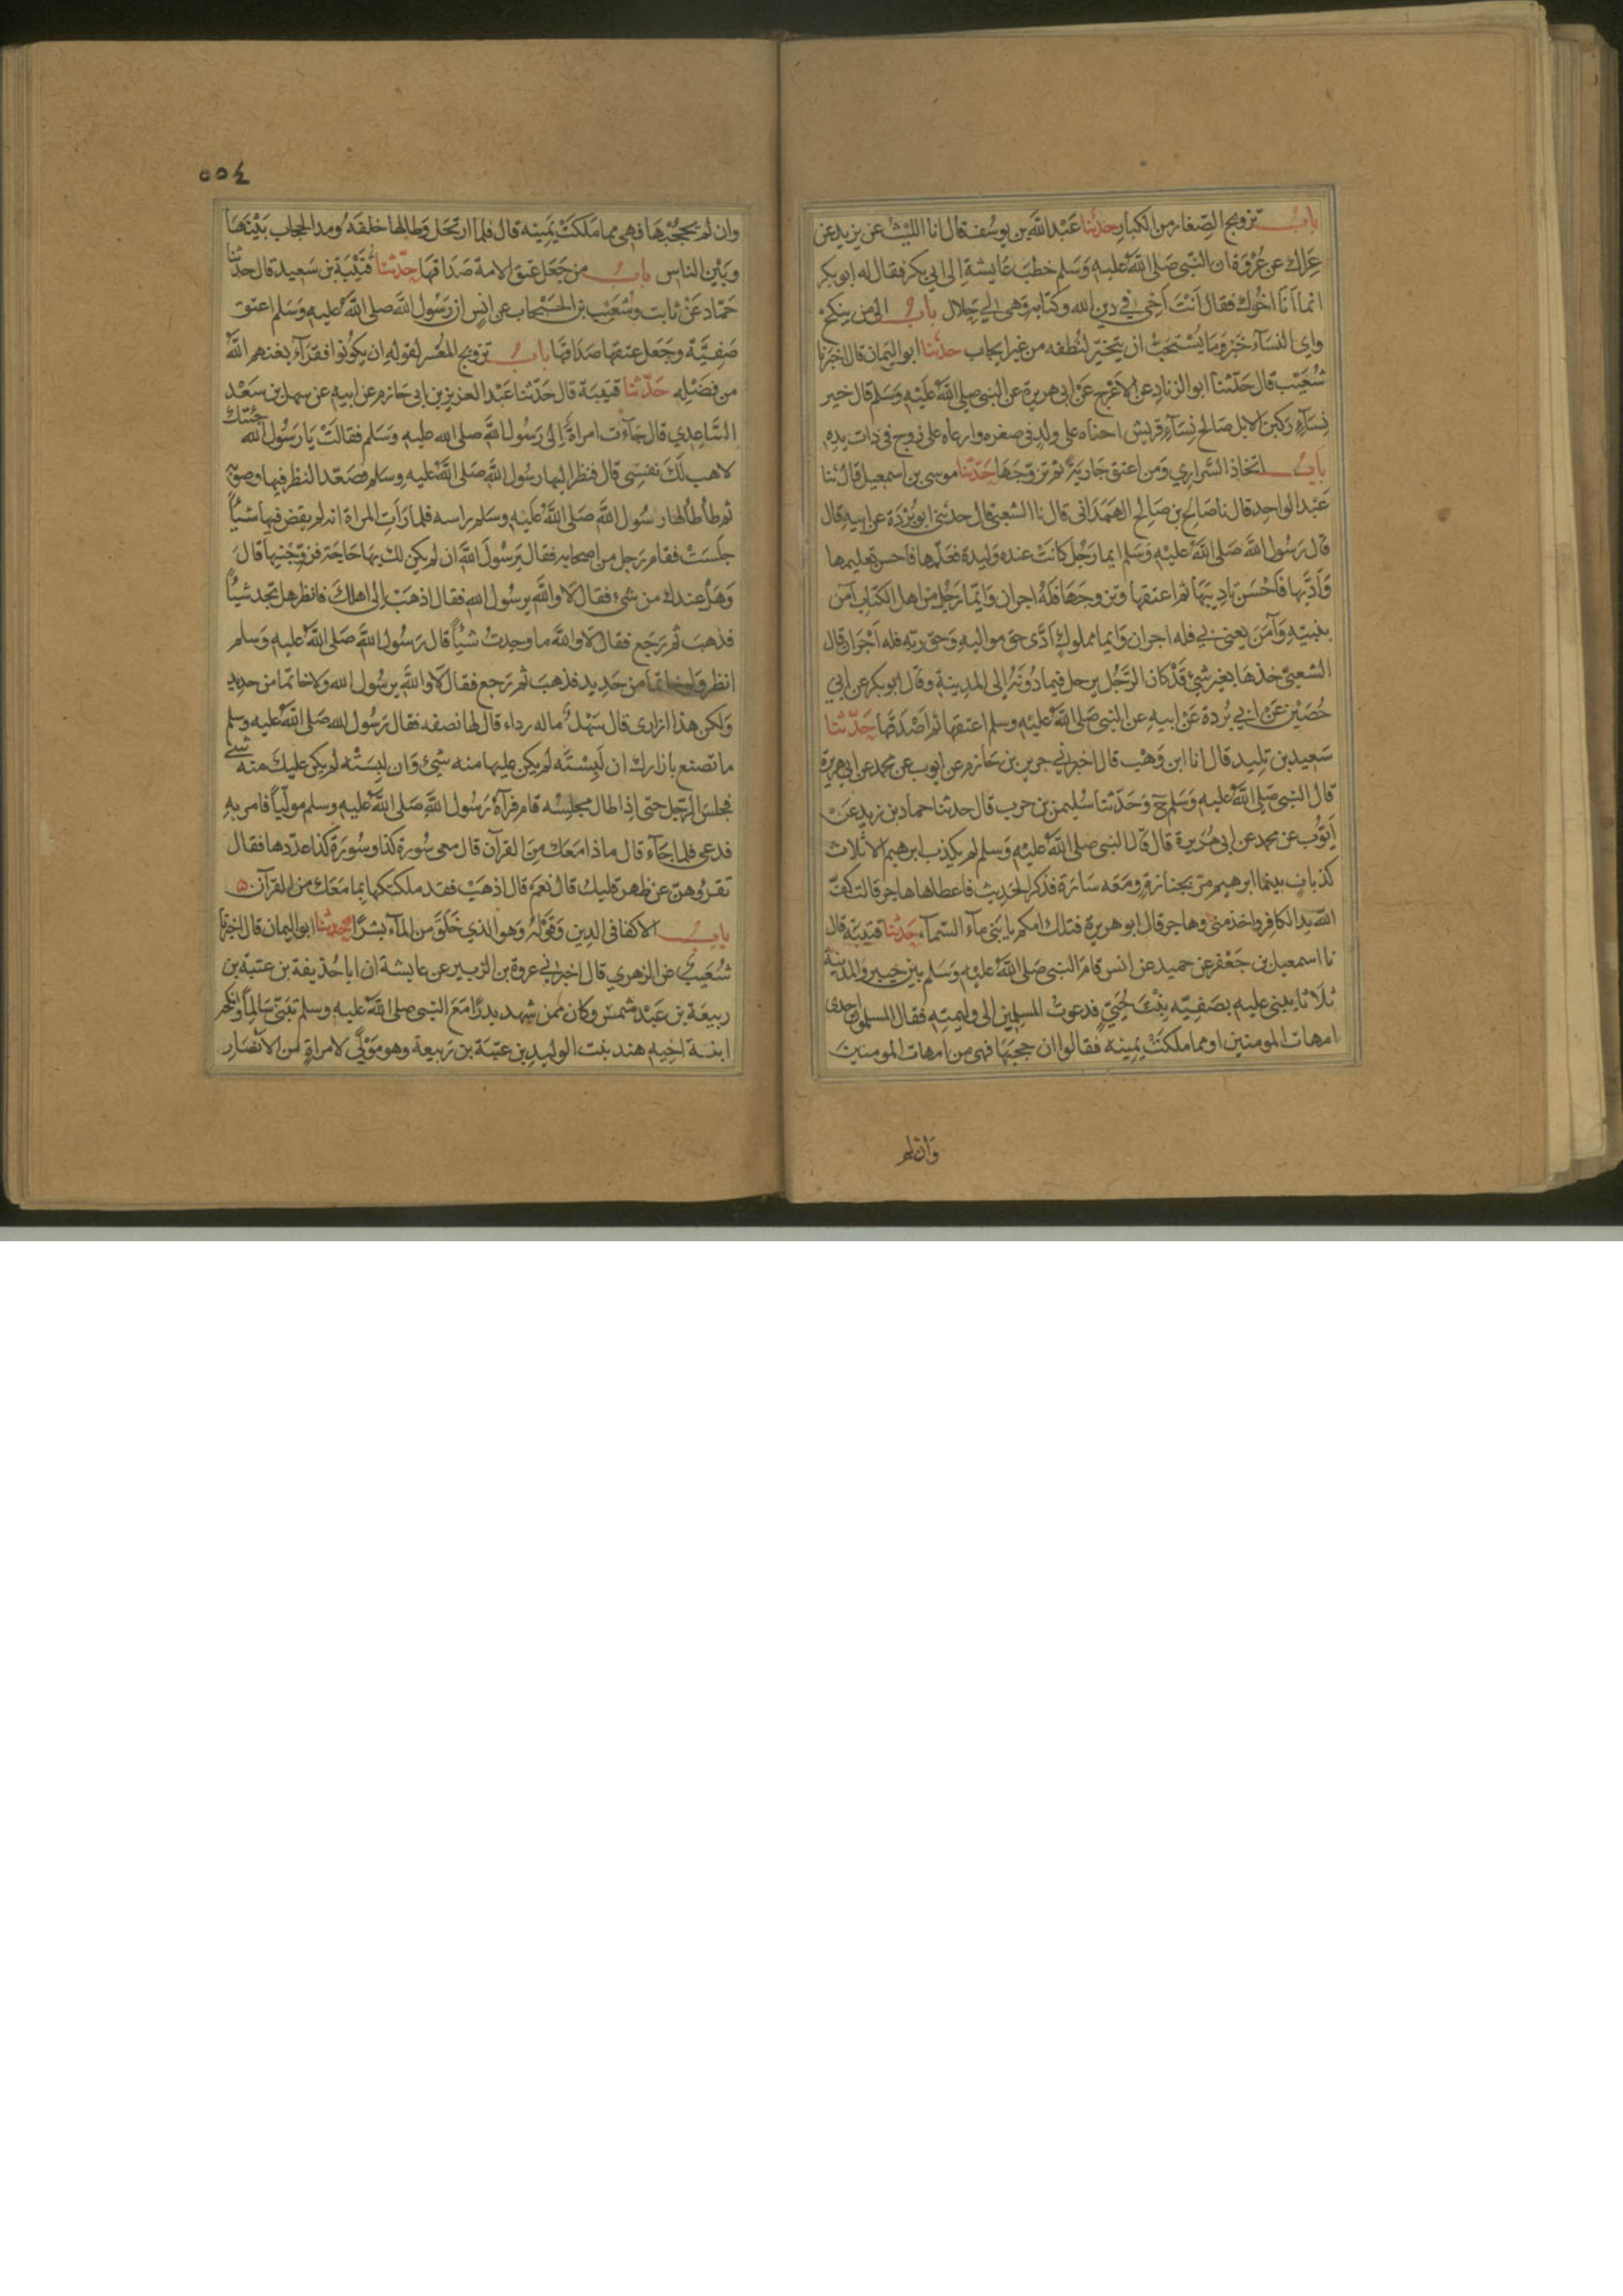 باب تزويج الصغار من الكبار حدثنا عَبْد اللهَ بن يوسُف قال انا الليْث عن يزيد عن
عِراك عن عُرْوَة ان النبّى صَلى اللهُ عليهِ وَسَلم خطبَ عَايشة اِلى ابي بكر فقال له ابو بكر
انما اَنَا اخُوك فقال اَنْتَ اَخِى في دين الله وكتابهِ وَهى لي حَلال باب الى من ينكح
واى النسَآء خَير وَمَا يُسْتحبّ ان يتخيّر لنُطفه من غير ايجاب حدثنا ابو اليَمان قال اخبرَنا
شعَيْب قال حَدّثنا ابو الزنادِ عن الاعْرج عَنْ ابى هريرة عن النبى صلى اللهُ عَليْهِ وَسَلم قال خير
نِسَآءٍ ركبن الابل صَالح نِسَآءِ قريش احناه على ولدٍ فى صغره وارعاه على زوج فى ذات يدِهِ
باب اتخاذ السَّراري وَمن اعتق جَاريَةً ثم تزوّجَهَا حَدّثنا موسى بن اسمعيل قال ثنا
عَبْد الواحِد قال نا صَالح بن صَالح الهَمَدَانى قال نا الشعبى قال حدثنى ابو بُرْدَة عن ابيهِ قال
قال رَسُول اللهَ صَلى اللهُ عليْهِ وَسَلم ايما رَجُل كانَتْ عنده وَليدة فعَلّمها فاحسن تعليمها
وَاَدّبها فَاحْسَنَ تادِيبَهَا ثم اعتقها وتزوجَهَا فَلهُ اجران وَايّما رَجُل من اهل الكتاب آمن
بنبيّهِ وَآمَنَ يعنى بي فله اجران وَايما مملوكٍ اَدَّى حق مواليهِ وَحَق ربّهِ فله اَجْرَان قال
الشعبىّ خذهَا بغير شئٍ قَدْ كان الرَّجُل يرحل فيما دُونَهُ اِلى المدِينةِ وقال ابو بكر عن ابي
حُصَيْن عَنْ ابي بُردة عَنْ ابيهِ عن النبى صَلى اللهُ عليْهِ وسلم اعتقها ثم اَصْدَقَهَا حَدّثنا
سَعِيد بن تليد قال انا ابن وَهْب قال اخبرني جرير بن حَازم عن ايوب عن محمد عن ابى هريرة
قال النبى صَلى اللهُ عليهِ وَسَلم ح وَحَدّثنا سُليمن بن حرب قال حدثنا حماد بن زيد عَنْ
اَيّوُب عن محمد عن ابى هُرَيرة قال قال النبى صلى اللهُ عليْهِ وَسَلم لم يكذب ابرهيم الا ثلاث
كذباتٍ بينما ابرهيم مرّ بجبّارٍ ومَعَه سَارَة فذكر الحَدِيث فاعطاها هاجر قالت كفّ
اللهَ يد الكافر واخدمنى هاجر قال ابو هريرة فتلك امكم يا بَنى مآء السّمآء حَدثنا قتيبَة قال
نا اسمعيل بن جَعْفر عن حميد عن انس قامَ النبى صَلى اللهُ عليْهِ وَسَلم بين خيبر والمدينة
ثلَاثا يبنى عليهِ بصَفِيّه بنْتَ حُيَيّ فدعوت المسلمين الى وليمتِهِ فقال المسلمون احدى
امهات المومنين او مما ملكتْ يَمِينه فقالوا ان حجبَهَا فهى من امهات المومنين
وَان لم
٥٥٤
وان لم يَحجُبْهَا فهى مما مَلكتْ يَمِينه قال فلما ارتحَل وَطا لها خلفَهُ ومد الحجاب بَيْنَهَا
وبَيْن الناس باب من جَعَل عتق الامة صَدَاقهَا حدّثنا قتَيْبَة بن سَعيد قال حدثنا
حَمّاد عَنْ ثابت وشعَيْب بن الحَبْحاب عن انس ان رَسُول اللهَ صلى اللهُ عليهِ وَسَلم اعتق
صَفِيَّة وجَعَل عتقها صَدَاقهَا باب تزويج المعْسر لقولهِ ان يكونوا فقرَآء يغنهم اللهُ
من فَضْلِهِ حَدّثنا قتيبَة قال حَدّثنا عَبْد العزيز بن ابى حَازم عن ابيهِ عن سهل بن سَعْد
السّاعِدي قال جآءت امراة اِلى رَسُول اللهَ صلى الله عليه وَسَلم فقالَتْ يَا رَسُول الله جئتك
لاهب لَكَ نفسِى قال فنظر اليها رسُول اللهَ صَلى اللهُ عليه وسَلم فصَعّد النظر فيها وصوّبه
ثم طأطأ لها رسُول اللهَ صَلى اللهُ عَليْهِ وسَلم راسه فلما رَأتِ المراة انه لم يقض فيها شيْأً
جلَسَتْ فقام رَجل من اصحابهِ فقال يَرسُولَ اللهَ ان لم يكن لك بهَا حَاجَة فزوّجْنيها قال
وَهَل عندك من شئ فقال لاَ واللهَ يرسُول الله فقال اذهَبْ اِلى اهلك فانظر هل تجد شيْأً
فذهبَ ثم رَجَع فقال لا واللهَ ما وجدتُ شيْأً قال رَسُول اللهَ صَلى اللهُ عليهِ وَسَلم
انظر وَلو خاتمًا من حَدِيد فذهبَ ثم رَجع فقال لاَ واللهَ يرسُول الله وَلا خاتمًا من حديدٍ
وَلكن هذا ازارى قال سَهْل ما له رداء قال لها نصفه فقال رَسُول الله صَلى اللهُ عليهِ وسلم
ما تصنع بازارك ان لَبِسْتَه لم يكن عليها منه شئ وَان لبسَتْه لم يكن عليكَ منه شئ
فجلس الرّجل حتى اِذا طال مجلِسُه قام فرآهُ رَسُول اللهَ صَلى اللهُ عليهِ وسلم مولّياً فامر بهِ
فدعى فلما جَآء قال ماذا مَعَك مِنَ القرآن قال معى سُورة كذا وسُورَة كذا عدّدها فقال
تقروُهنّ عن ظهر قلبك قال نعَمْ قال اذهَبْ فقد ملكتكها بما مَعَك من القرآن
باب الاكفا فى الدِين وَقَوْلُهُ وَهو الذي خَلَقَ من المَآء بشرًا حدثنا ابو اليمان قال اخبرنا
شُعَيب عن الزهري قال اخبرني عروة بن الزبير عن عايشة ان ابا حُذيفة بن عتبة بن
ربيعَة بن عَبْد شمس وكان ممن شهد بدرًا مَعَ النبى صلى اللهُ عليهِ وسلم تبَنّى سَالِمًا وانكحه
ابنة اخِيهِ هند بنت الوليد بن عتبَة بن ربيعة وهو مَوْلىً لامراةٍ من الانْصَارِ